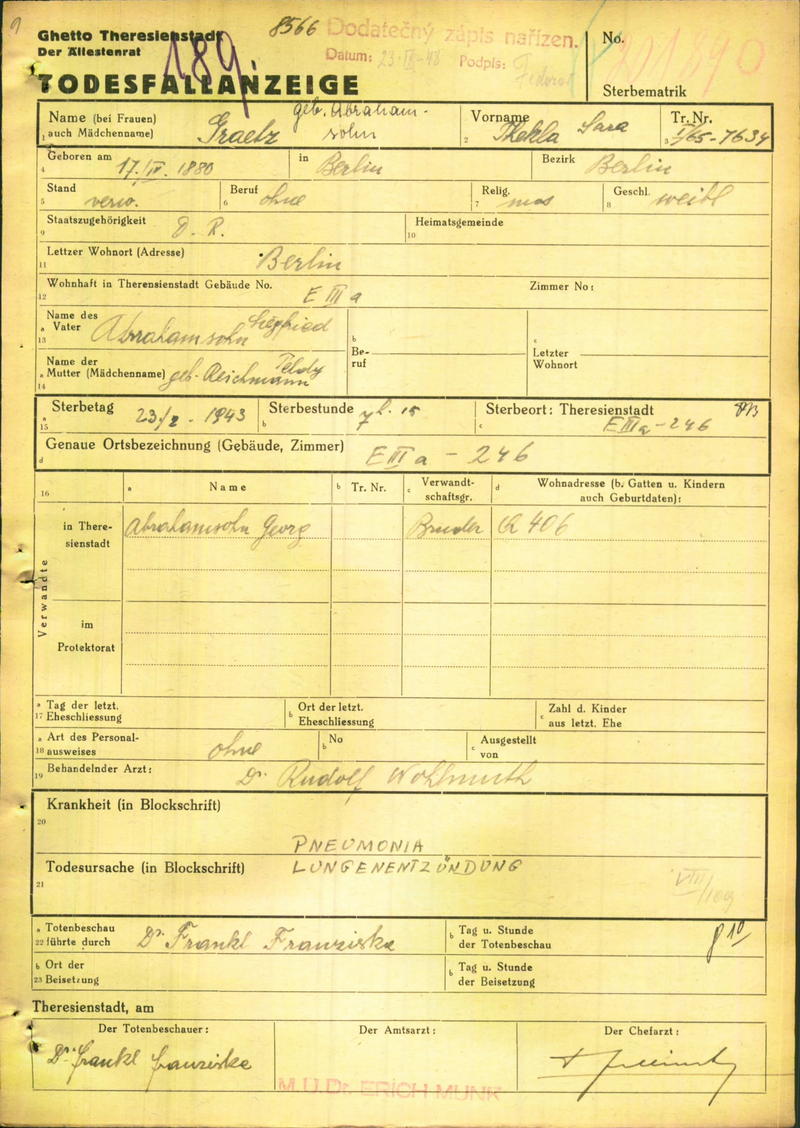 Ghetto Theresienstadt
Der Ältestenrat
8566
Dodatečný zápis nařízen.
Datum: 23-IX-48 Podpis:
No.
189.
TODESFALLANZEIGE
Sterbematrik
Name (bei Frauen)
1 auch Mädchenname)
Graetz
geb. Abraham-
sohn
Vorname
2
Thekla Sara
Tr. Nr.
3
I/65-7634
Geboren am
4
17./IV. 1880
in
Berlin
Bezirk
Berlin
Stand
5
verw.
Beruf
6
ohne
Relig.
7
mos
Geschl.
8
weibl
Staatszugehörigkeit
9
D. R.
Heimatsgemeinde
10
Lettzer Wohnort (Adresse)
11
Berlin
Wohnhaft in Therensienstadt Gebäude No.
12
E III a
Zimmer No:
Name des
a Vater
13
Abrahamsohn Siegfried
b
Be-
ruf
c
Letzter
Wohnort
Name der
a Mutter (Mädchenname)
14
geb. Reichmann
a Sterbetag
15
23/2. 1943
b Sterbestunde
7 h. 15
c Sterbeort: Theresienstadt
E III a - 246
d Genaue Ortsbezeichnung (Gebäude, Zimmer)
E III a - 246
16
a Name
b Tr. Nr.
c Verwandt-
schaftsgr.
d Wohnadresse (b. Gatten u. Kindern
auch Geburtdaten):
Verwandte
in There-
sienstadt
Abrahamsohn Georg
Bruder
Q 406
im
Protektorat
a Tag der letzt.
17 Eheschliessung
b Ort der letzt.
Eheschliessung
c Zahl d. Kinder
aus letzt. Ehe
a Art des Personal-
18 ausweises
ohne
b No
c Ausgestellt
von
19 Behandelnder Arzt:
Dr. Rudolf Wohlmuth
Krankheit (in Blockschrift)
20
PNEUMONIA
Todesursache (in Blockschrift)
21
LUNGENENTZÜNDUNG
VIII/109
a Totenbeschau
22 führte durch
Dr. Frankl Franziska
b Tag u. Stunde
der Totenbeschau
b Ort der
23 Beisetzung
b Tag u. Stunde
der Beisetzung
Theresienstadt, am
Der Totenbeschauer:
Dr. Frankl Franziska
Der Amtsarzt:
M.U.Dr. ERICH MUNK
Der Chefarzt: